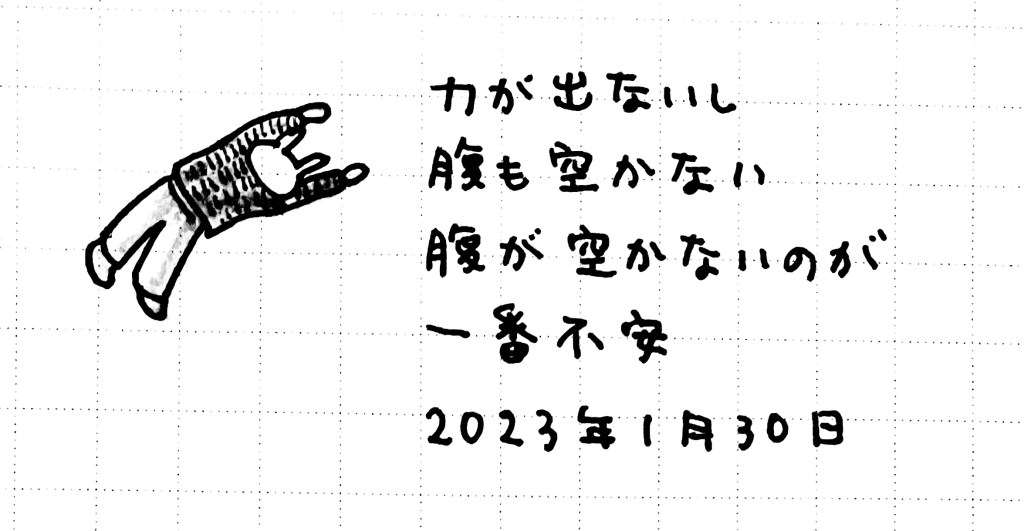 力が出ないし
腹も空かない
腹が空かないのが
一番不安
2023年1月30日